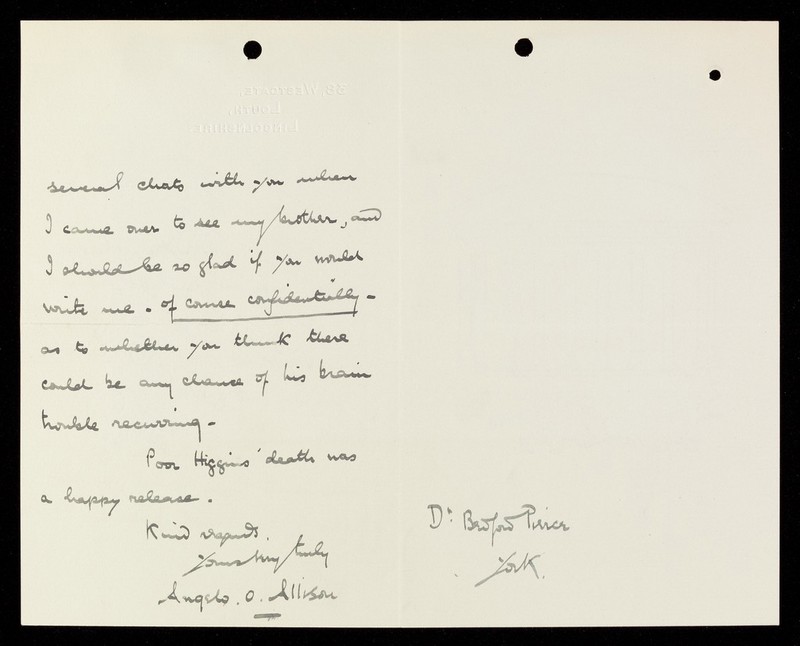 several chats with you when
I came over to see my brother, and
I should be so glad if you would
write me - of course confidentially -
as to whether you think there
could be any chance of his brain
trouble recurring -
Poor Higgins' death was
a happy release.
Kind regards.
Yours very truly
Angelo. O. Allison
Dr Bedford Pierce
York.